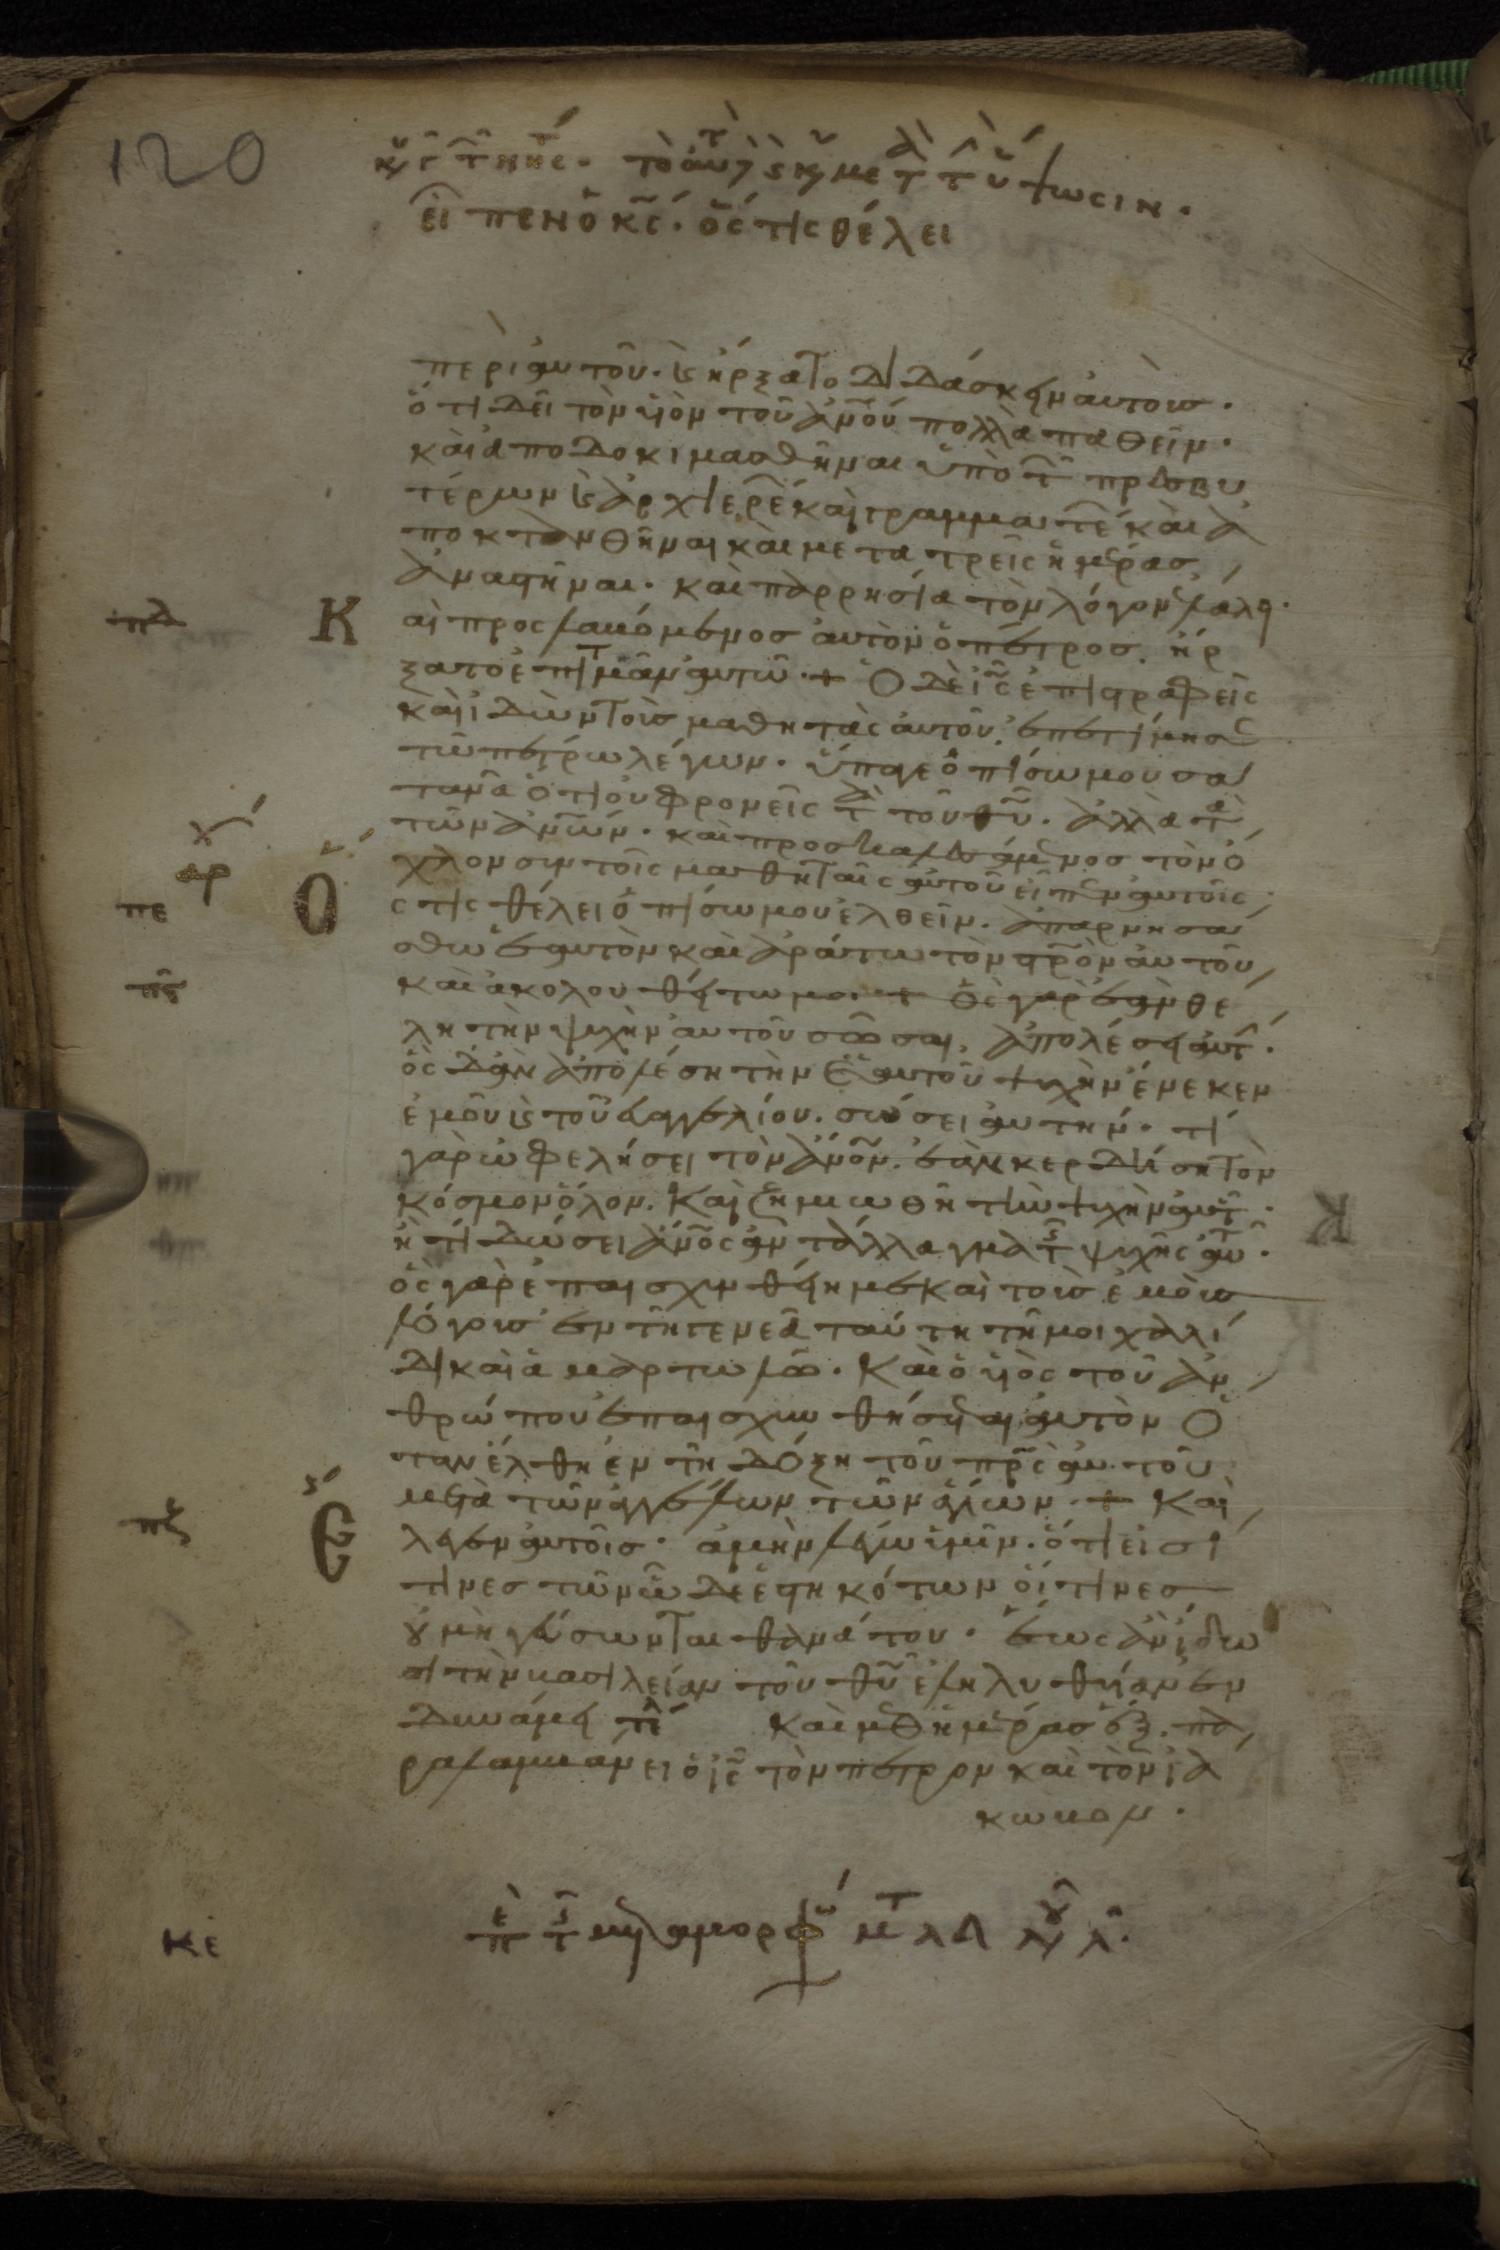 120
κυ τ νης. το αυτ κυ με τ τ ύψωσιν.
εἶπεν ὁ κς. ὅς τις θέλει
περὶ αὐτοῦ. καὶ ἤρξατο διδάσκειν αὐτοὺς.
ὅτι δεῖ τὸν υἱὸν τοῦ ἀνου πολλὰ παθεῖν.
καὶ ἀποδοκιμασθῆναι ὑπὸ τῶν πρεσβυ
τέρων καὶ ἀρχιερέων καὶ γραμματέων καὶ ἀ
ποκτανθῆναι καὶ μετα τρεῖς ἡμέρας
ἀναστῆναι. καὶ παρρησία τὸν λόγον ἐλάλει.
πδ
Κ
αὶ προσλαβόμενος αὐτὸν ὁ πέτρος. ἤρ
ξατο ἐπιτιμᾶν αὐτῶ. + Ὁ δὲ ις ἐπιστραφεὶς
καὶ ἰδὼν τοὺς μαθητὰς αὐτοῦ. ἐπετίμησε
τῶ πέτρω λέγων. ὕπαγε ὀπίσω μου σα
τανᾶ ὅτι οὐ φρονεῖς τὰ τοῦ θυ. ἀλλὰ τὰ
τῶν ἀνων. καὶ προσκαλεσάμενος τὸν ὄ
χλον σὺν τοῖς μαθηταῖς αὐτοῦ εἶπεν αὐτοῖς
αρ
πε
Ὅ
ς τις θέλει ὀπίσω μου ἐλθεῖν. ἀπαρνησά
σθω ἑαυτὸν καὶ ἀράτω τὸν στρον αὐτοῦ
πς
καὶ ἀκολουθείτω μοι + ὃς γὰρ ἐὰν θέ
λη τὴν ψυχὴν αὐτοῦ σῶσαι, ἀπολέσει αὐτ.
ὃς δ' ἂν ἀπολέση τὴν ἑαυτοῦ ψυχὴν ἕνεκεν
ἐμοῦ καὶ τοῦ εὐαγγελίου. σώσει αὐτήν. τί
γὰρ ὠφελήσει τὸν ἄνον. ἐὰν κερδήση τὸν
κόσμον ὅλον. καὶ ζημιωθῆ τὴν ψυχὴν αὐτοῦ.
ἢ τί δώσει ἄνος ἀντάλλαγμα τῆς ψυχῆς αὐτοῦ.
ὃς γὰρ ἐπαισχυνθείη με καὶ τοὺς ἐμοὺς
λόγους ἐν τῆ γενεᾶ ταύτη τῆ μοιχαλί
δι καὶ ἁμαρτωλῶ. καὶ ὁ υἱὸς τοῦ ἀν
θρώπου ἐπαισχυνθήσεται αὐτὸν ὅ
ταν ἔλθη ἐν τῆ δόξη τοῦ πρς αὐτοῦ
μετὰ τῶν ἀγγέλων τῶν ἁγίων. + Καὶ
πζ
Ε
λεγεν αὐτοῖς. ἀμὴν λέγω ὑμῖν. ὅτι εἰσί
τινες τῶν ὧδε ἑστηκότων οἵτινες
οὐ μὴ γεύσωνται θανάτου. ἕως ἂν ἴδω
σι τὴν βασιλείαν τοῦ θυ ἐληλυθυῖαν ἐν
δυνάμει τέλ καὶ μεθ ἡμέρας ἕξ. πα
ραλαμβάνει ὁ ις τὸν πέτρον καὶ τὸν ἰά
κωβον.
κε